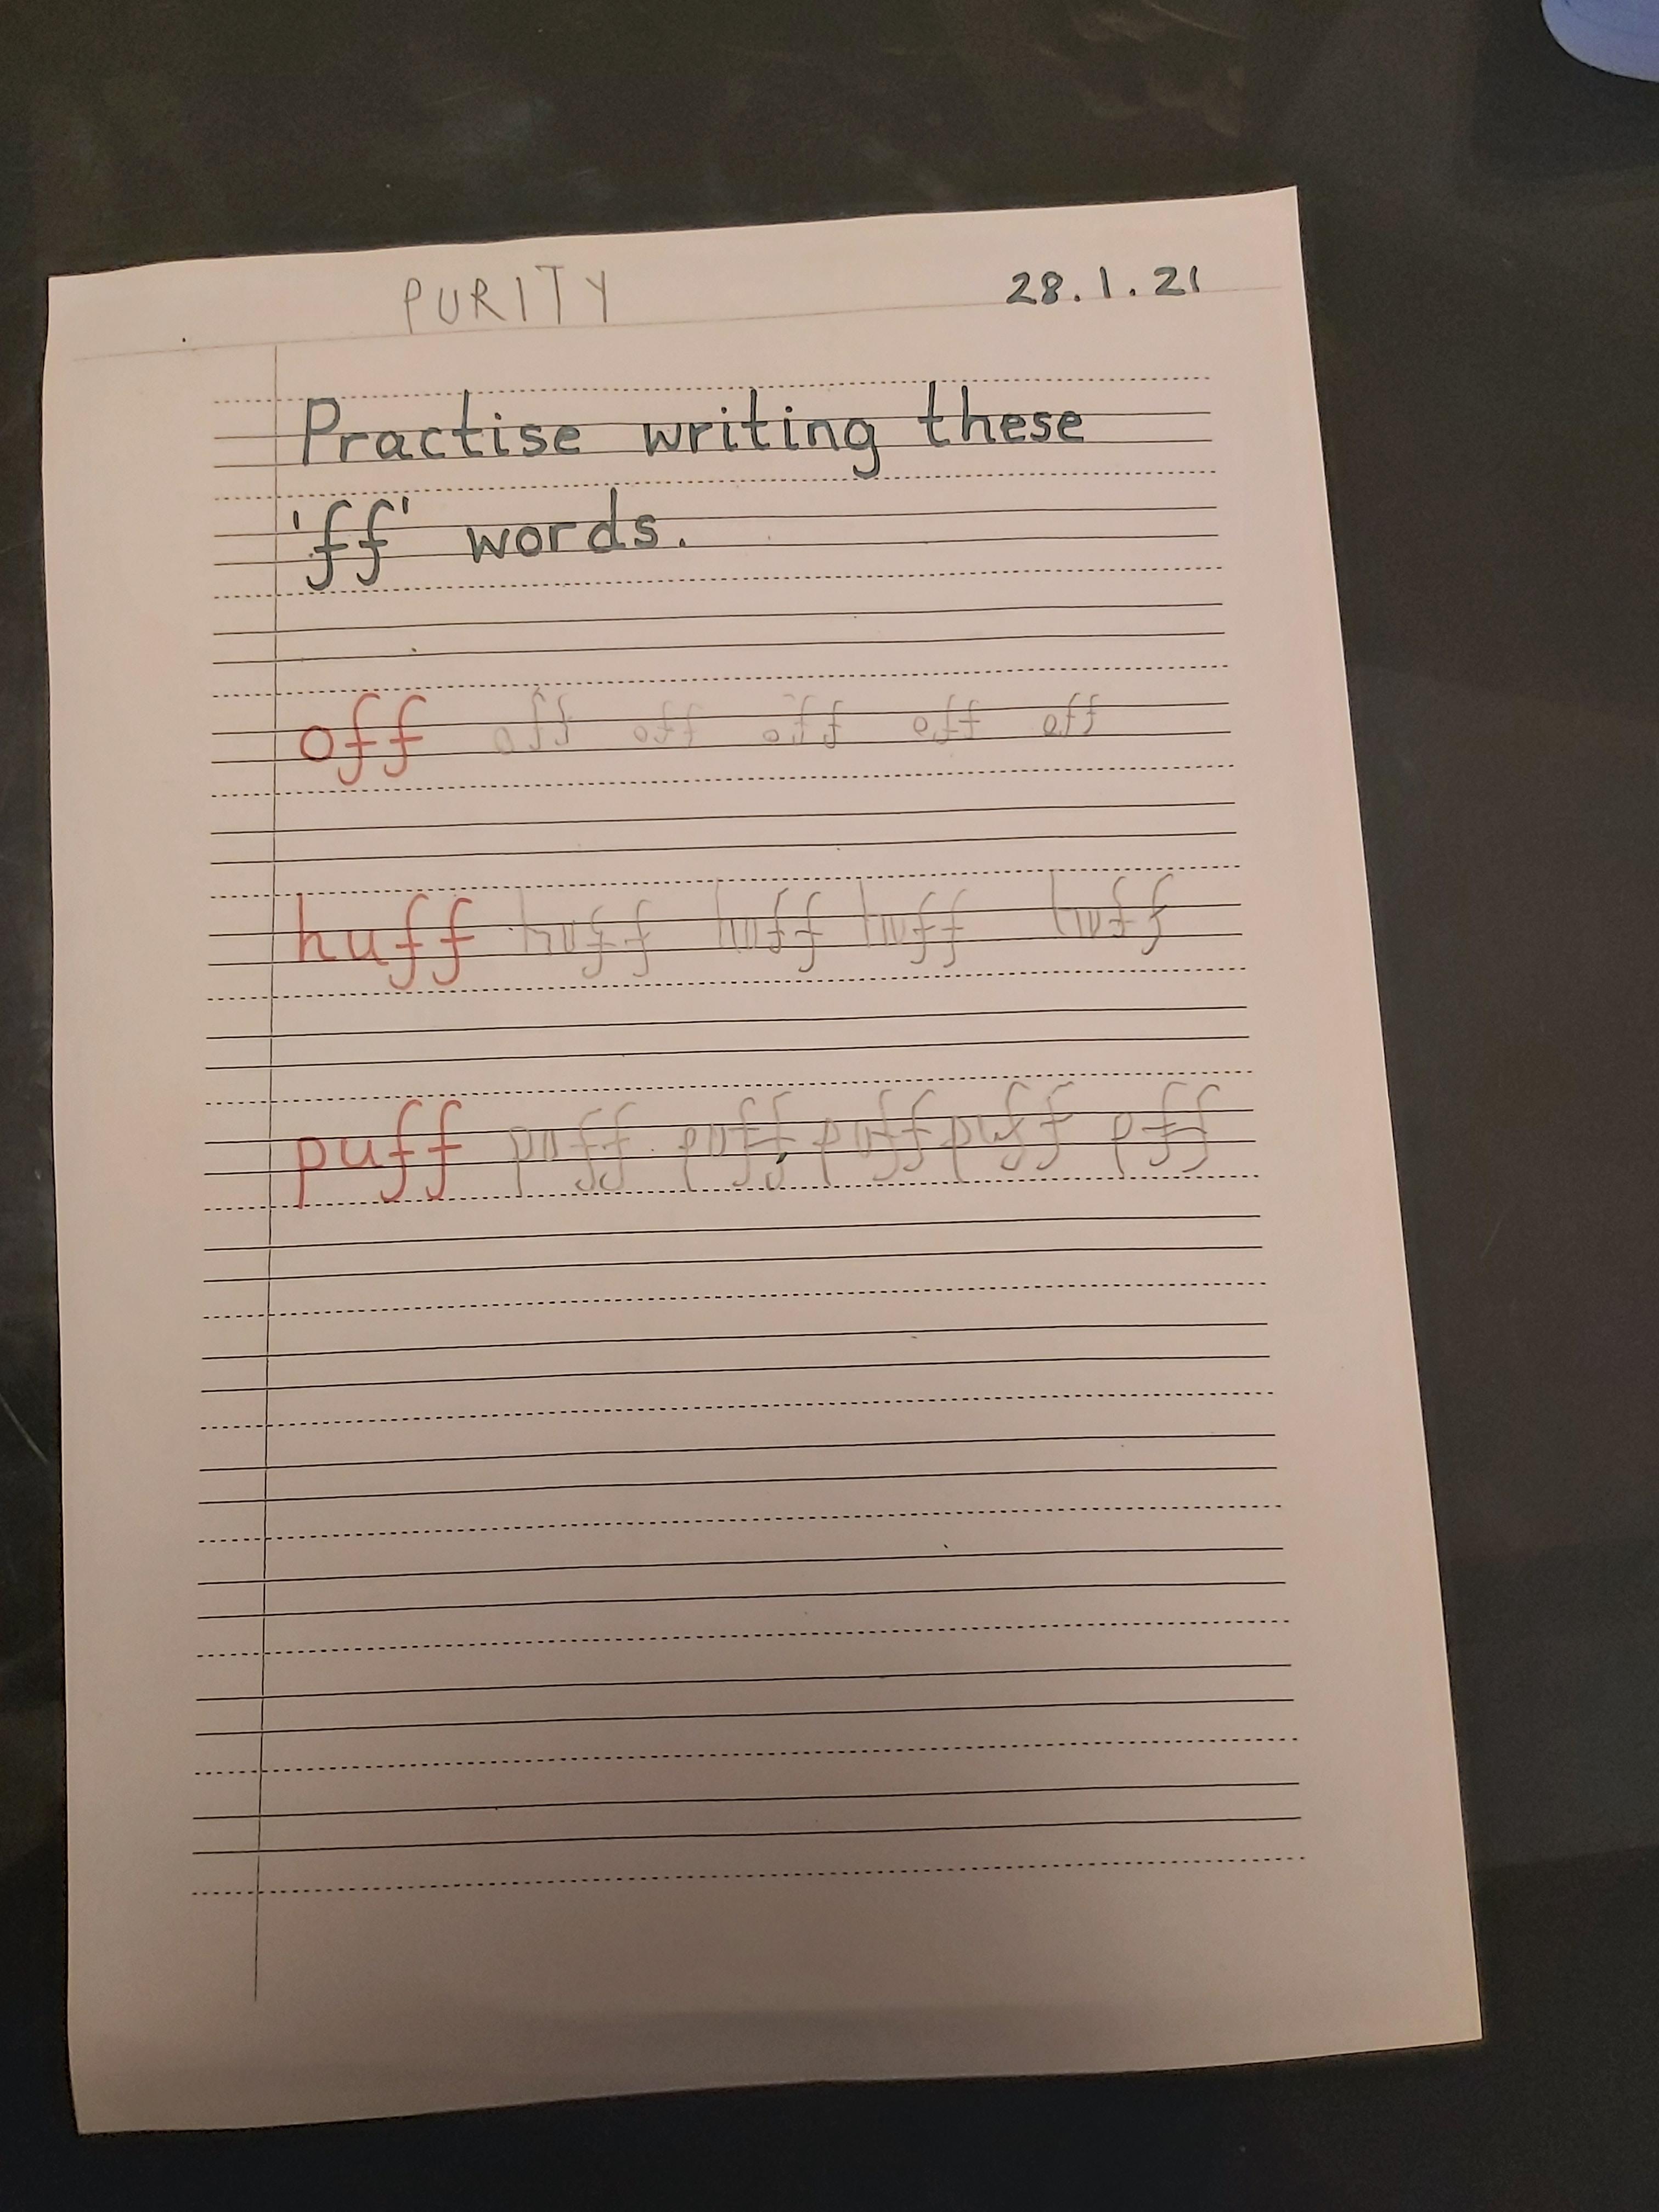 PURITY 28.1.21
Practise writing these
'ff' words.
off off off off off off
huff huff huff huff huff
puff puff puff puff puff pff